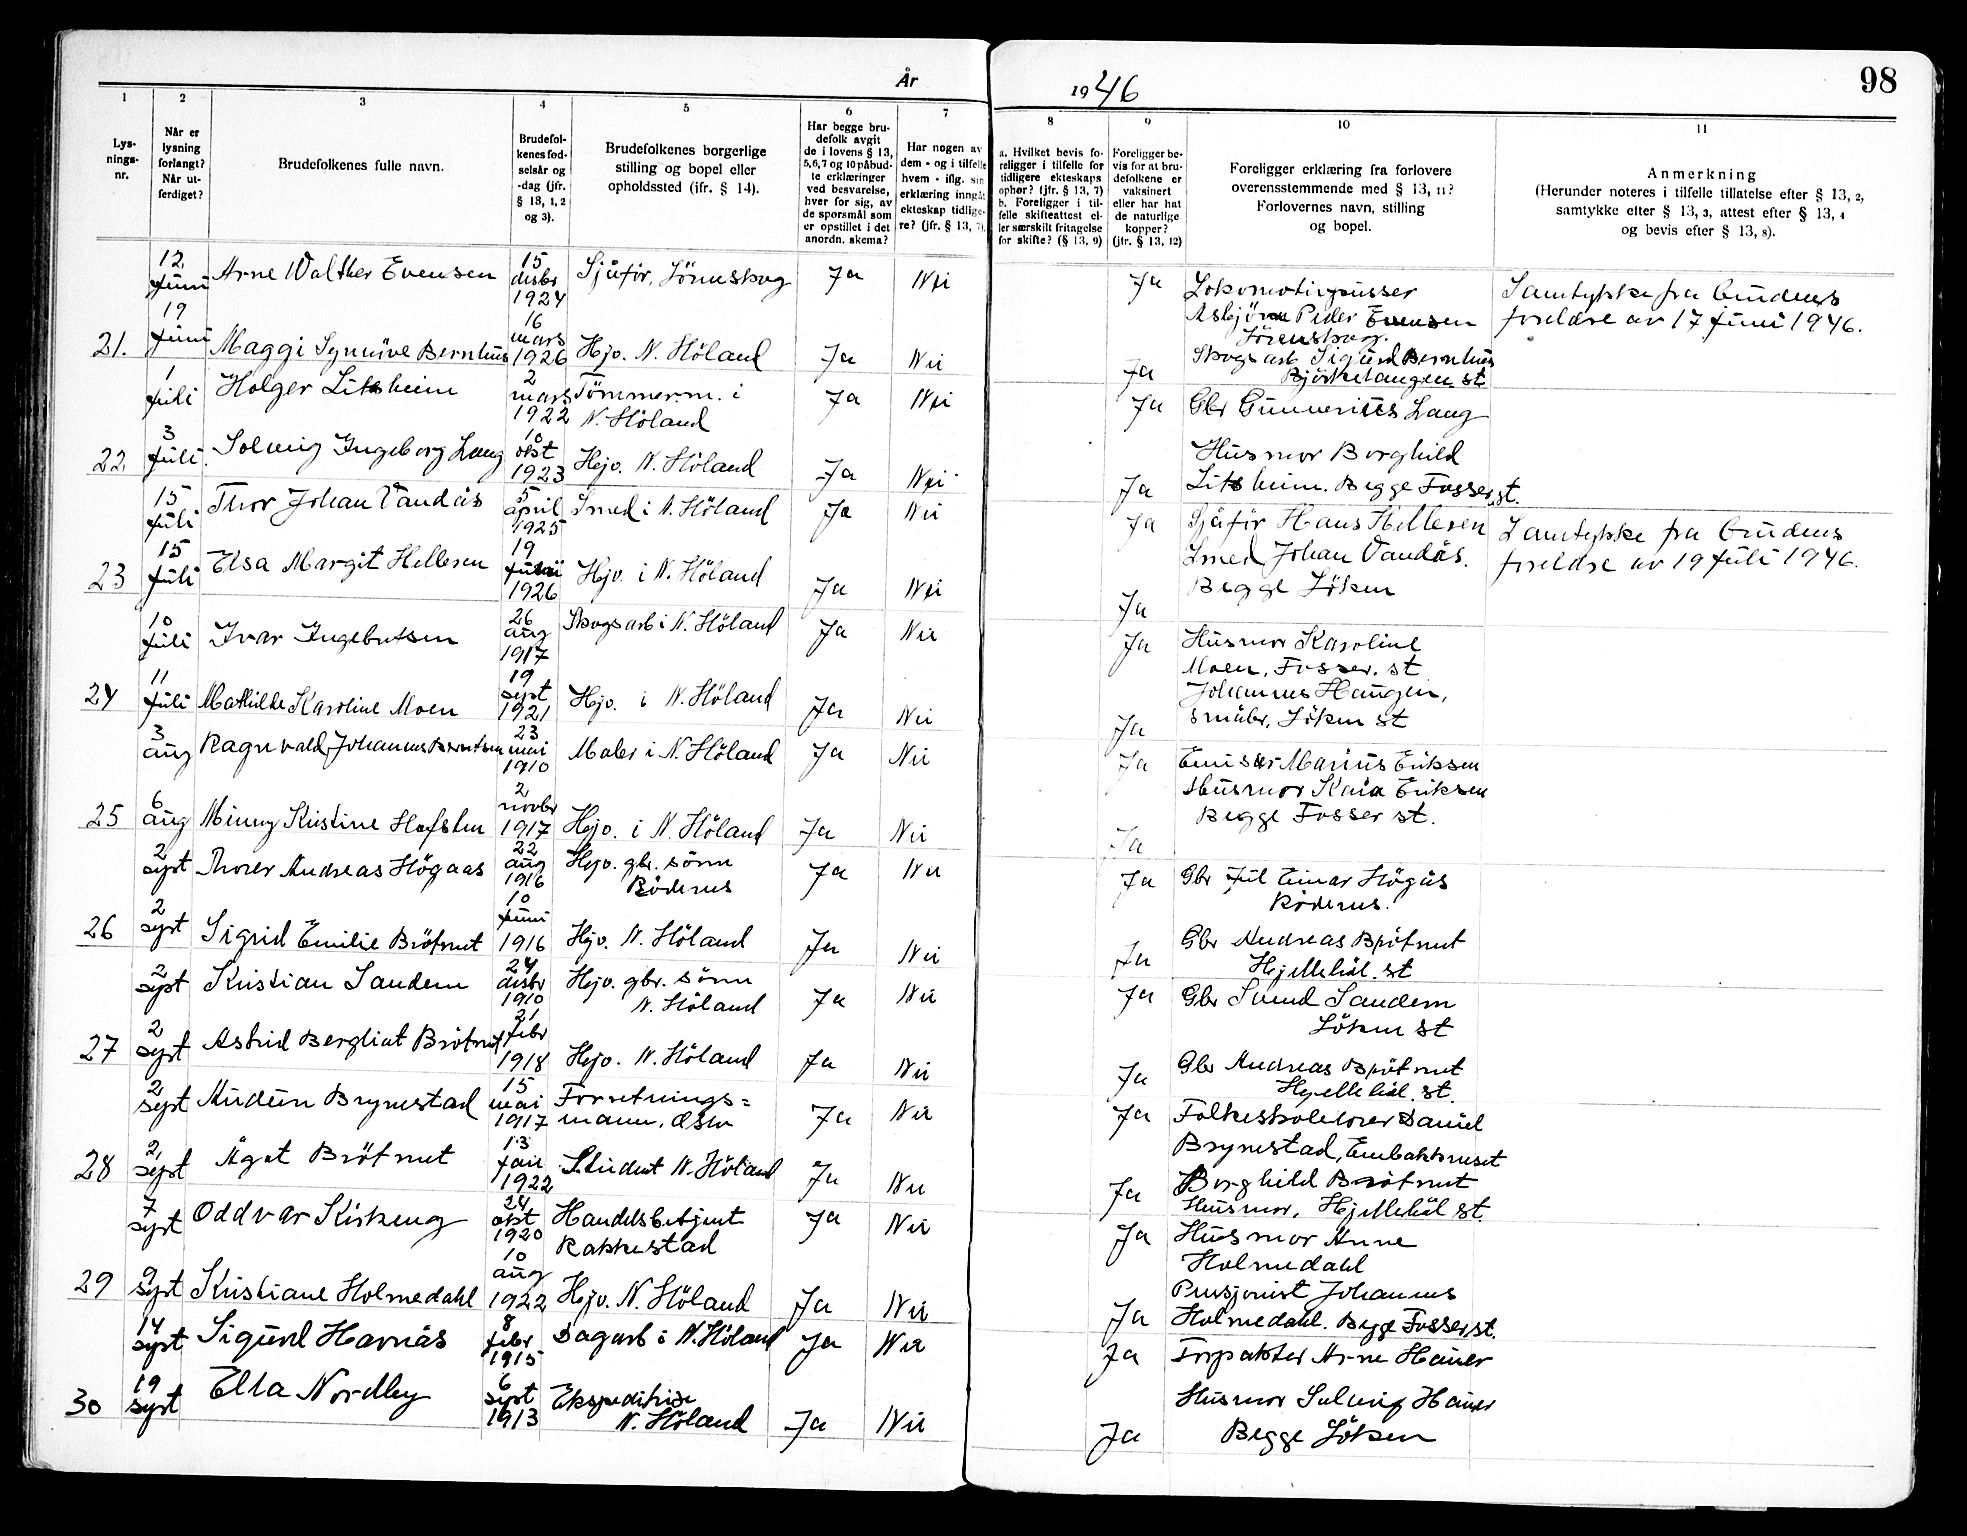 År 1946
98
1
2
3
4
5
6
7
8
9
10
11
Lys-
nings-
nr.
Når er
lysning
forlangt?
Når ut-
ferdiget?
Brudefolkenes fulle navn.
Brudefol-
kenes fød-
selsår og
-dag (jfr.
§ 13, 1, 2
og 3).
Brudefolkenes borgerlige
stilling og bopel eller
opholdssted (ifr. § 14).
Har begge bru-
defolk avgit
de i lovens § 13,
5,6,7 og 10 påbud-
te erklæringer
ved besvarelse,
hver for sig, av
de spørsmål som
er opstillet i det
anordn. skema?
Har nogen av
dem - og i tilfelle
hvem - iflg. sin
erklæring inngåt
ekteskap tidlige-
re? (jfr. § 13, 7).
a. Hvilket bevis fo-
religger i tilfelle for
tidligere ekteskaps
ophør? (jfr. § 13, 7)
b. Foreligger i til-
felle skifteattest el-
ler særskilt fritagelse
for skifte? (§ 13, 9)
Foreligger be-
vis for at bru-
defolkene er
vaksinert
eller har hat
de naturlige
kopper?
(jfr. § 13, 12)
Foreligger erklæring fra forlovere
overensstemmende med § 13, 11?
Forlovernes navn, stilling
og bopel.
Anmerkning
(Herunder noteres i tilfelle tillatelse efter § 13, 2,
samtykke efter § 13, 3, attest efter § 13, 4
og bevis efter § 13, 8).
21.
12
Juni
19
Juni
Arne Walther Evensen
Maggi Synnöve Bernhus
15
desbr
1924
16
mars
1926
Sjåför, Lörenskog
Hjv. N. Höland
Ja
Ja
Nei
Nei
Ja
Ja
Lokomotivpusser
Asbjörn Peder Evensen
Lörenskog.
Skogsarb Sigurd Bernhus
Björkelangen st
Samtykke fra brudens
foreldre av 17 juni 1946.
22.
1
juli
3
Juli
Holger Litsheim
Solveig Ingeborg Lang
2
mars
1922
10
okt
1923
Tömmerm. i
N. Höland
Hjv. N. Höland
Ja
Ja
Nei
Nei
Ja
Ja
Gbr Gunnerius Lang
Husmor Borghild
Litsheim. Begge Fosser st.
23
15
Juli
15
Juli
Thor Johan Vandås
Elsa Margit Hellesen
5
april
1925
19
Juni
1926
Smed i N. Höland
Hjv. i N. Höland
Ja
Ja
Nei
Nei
Ja
Ja
Sjåför Hans Hellesen
Smed Johan Vandås.
Begge Löken
Samtykke fra brudens
foreldre av 19 Juli 1946.
24
10
Juli
11
Juli
Ivar Ingebretsen
Mathilde Karoline Moen
26
aug
1917
19
sept
1921
Skogsarb i N. Höland
Hjv. i N. Höland
Ja
Ja
Nei
Nei
Ja
Ja
Husmor Karoline
Moen, Fosser. st
Johannes Haugen,
småbr, Löken st
25
3
aug
6
aug
Ragnvald Johannes Berntsen
Minny Kristine Hofsten
23
mai
1910
2
novbr
1917
Maler i N. Höland
Hjv. i N. Höland
Ja
Ja
Nei
Nei
Ja
Ja
Marius Eriksen
Husmor Kaia Eriksen
Begge Fosser st.
26
2
sept
2
sept
Thorer Andreas Högaas
Sigrid Emilie Bröfmet
22
aug
1916
10
Juni
1916
Hjv. gbr. sönn
Rödenes
Hjv. N. Höland
Ja
Ja
Nei
Nei
Ja
Ja
Gbr Jul Einar Högås
Rödenes.
Gbr Andreas Bröfmet
Hjellehöl. st
27
2
sept
2
sept
Kristian Sandem
Astrid Bergliot Bröfmet
24
desbr
1910
21
febr
1918
Hjv. gbr. sönn
N. Höland
Hjv. N. Höland
Ja
Ja
Nei
Nei
Ja
Ja
Gbr Svend Sandem
Löken st
Gbr Andreas Bröfmet
Hjellehöl. st.
28
2
sept
2
sept
Audun Brynestad
Ågot Bröfmet
15
mai
1917
13
jan
1922
Forretnings=
mann, Oslo
Student N. Höland
Ja
Ja
Nei
Nei
Ja
Ja
Folkeskolelærer Daniel
Brynestad, Enebakkneset
Borghild Bröfmet
Husmor, Hjellehöl st.
29
7
sept
9
sept
Oddvar Kirkeng
Kristiane Holmedahl
24
okt
1920
10
aug
1922
Handelsbetjent
Rakkestad
Hjv. N. Höland
Ja
Ja
Nei
Nei
Ja
Ja
Husmor Anne
Holmedahl
Pensjonist Johannes
Holmedahl. Begge Fosser st.
30
14
sept
19
sept
Sigurd Harnås
Ella Nordby
8
febr
1915
6
sept
1913
Dagarb i N. Höland
Ekspeditrise
N. Höland
Ja
Ja
Nei
Nei
Ja
Ja
Forpakter Arne Hauer
Husmor Solveig Hauer
Begge Löken